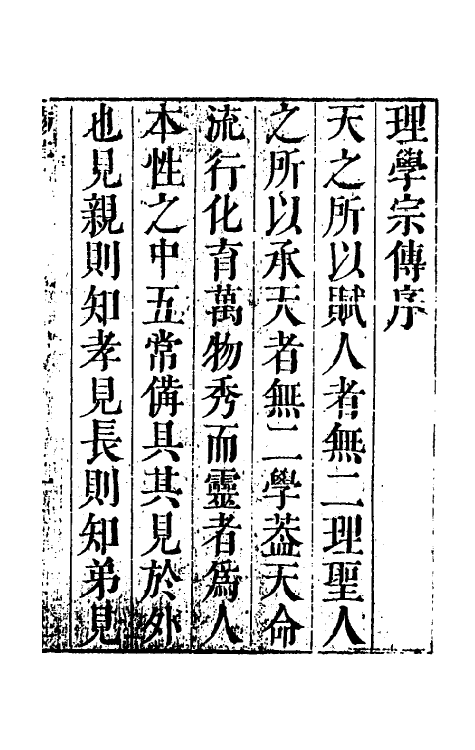 理學宗傳序
天之所以賦人者無二理聖人
之所以承天者無二學葢天命
流行化育萬物秀而靈者爲人
本性之中五常備具其見於外
也見親則知孝見長則知弟見